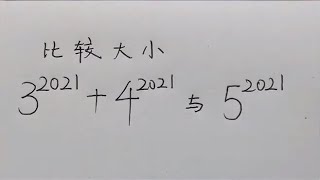 比较大小
3^2021 + 4^2021 与 5^2021